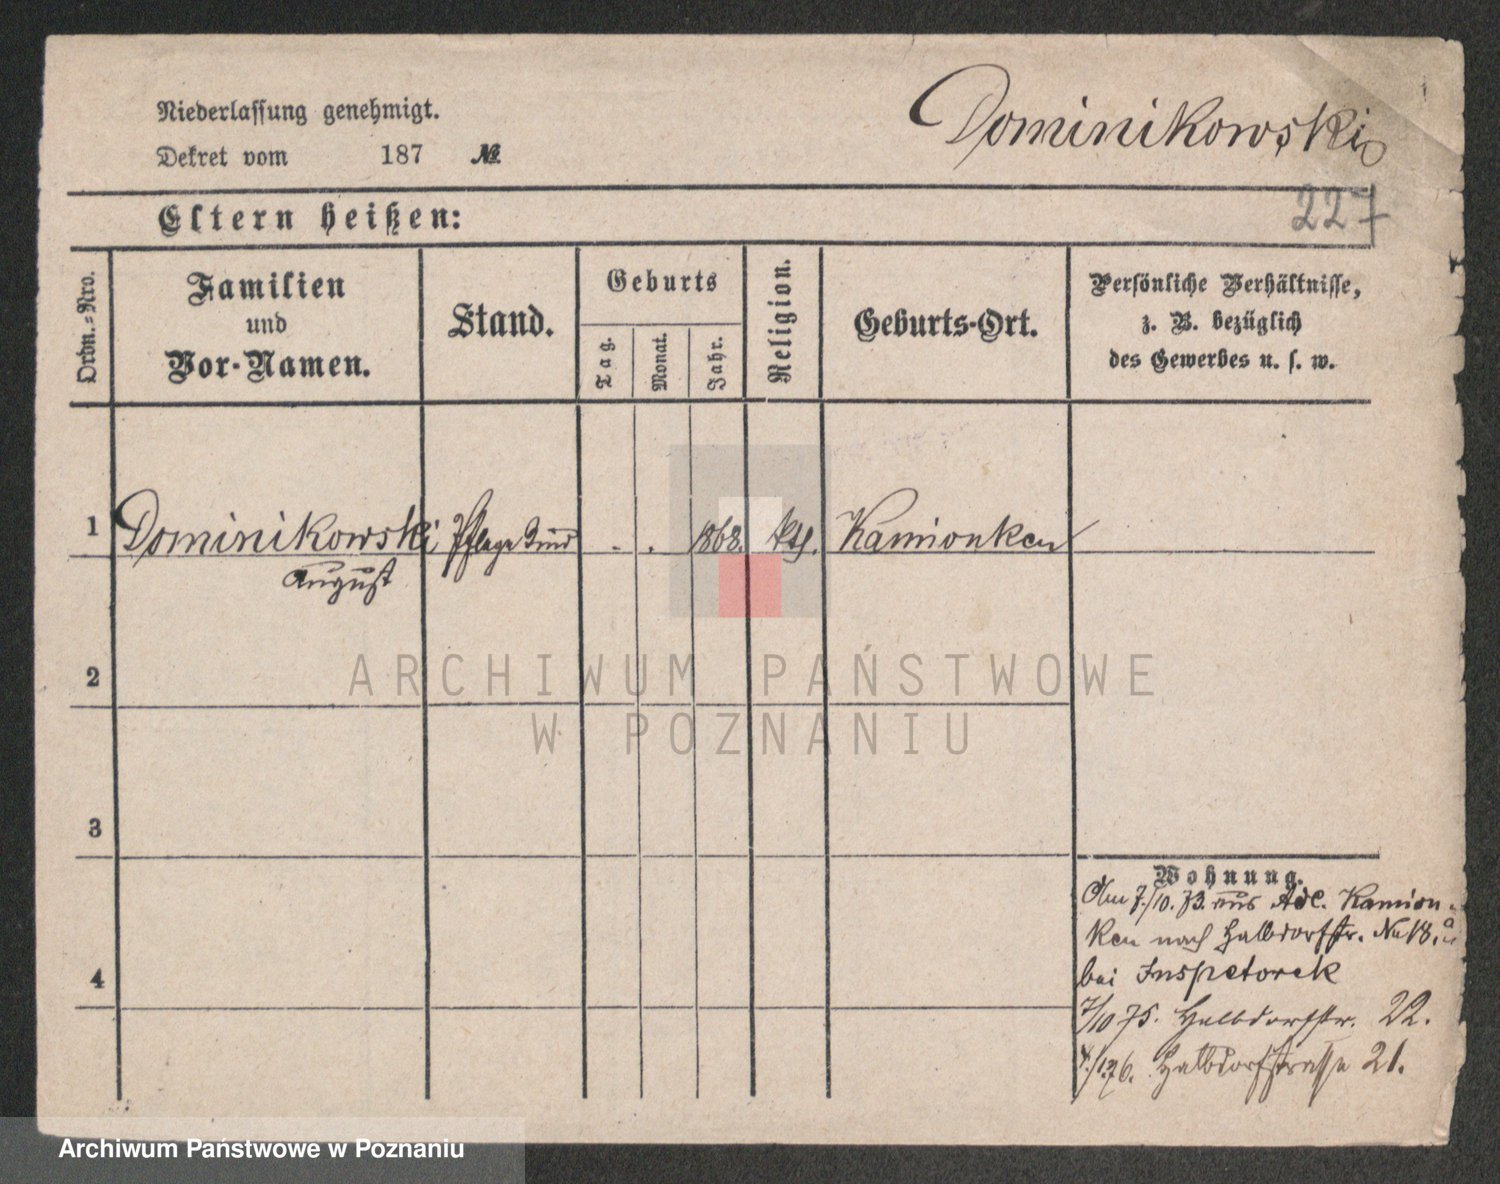 Niederlassung genehmigt.
Dekret vom 187 №
Dominikowski
227
Eltern heißen:
Ordn.-Nro.
Familien
und
Vor-Namen.
Stand.
Geburts
Tag.
Monat.
Jahr.
Religion.
Geburts-Ort.
Persönliche Verhältnisse,
z. B. bezüglich
des Gewerbes u. s. w.
1 Dominikowski Pflege 1868. kth. Kamionken
August
2
3
4
Wohnung.
Am 7./10. 73. aus Adl. Kamion-
ken nach Halbdorfstr. No 18.
bei Inspetorek
7/10 75. Halbdorfstr. 22.
Halbdorfstrasse 21.
ARCHIWUM PAŃSTWOWE
W POZNANIU
Archiwum Państwowe w Poznaniu